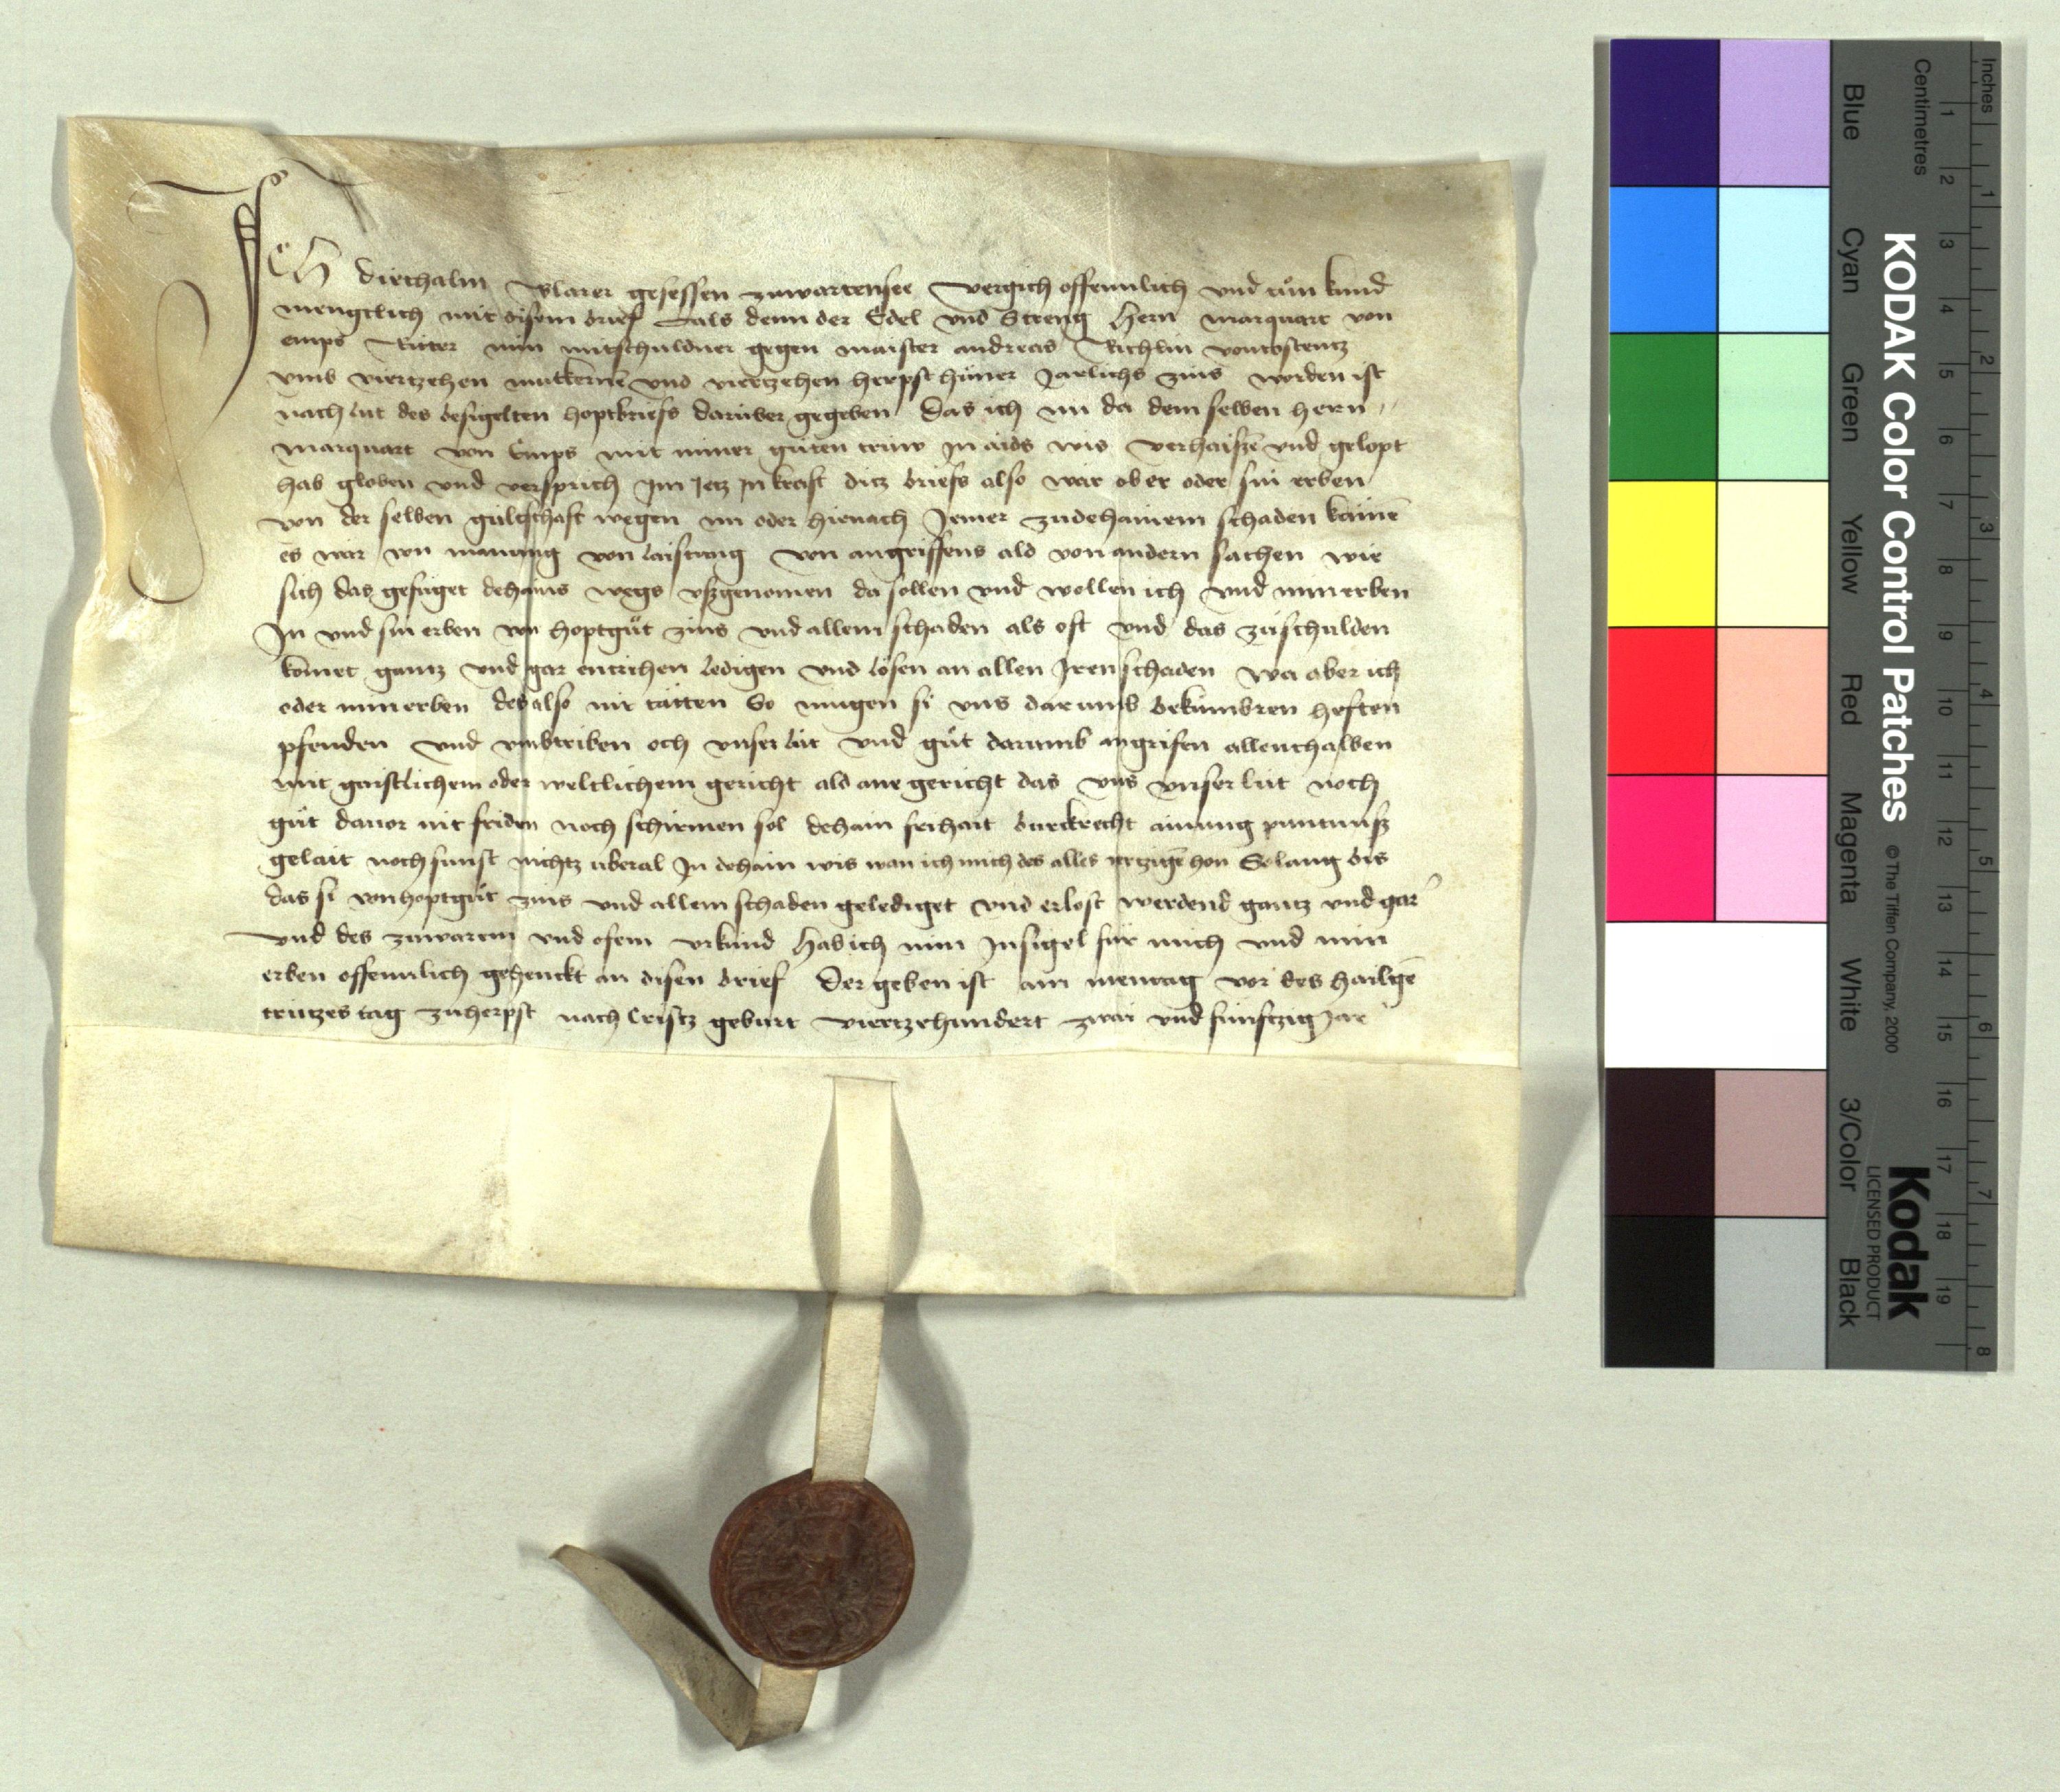 Ich diethalm Blarer gesessen zuwartensee Vergich offennlich vnd tůn kund
mengclich mit disem brief Als denn der Edel vnd Streng Herr marquart von
emps Ritter min mitschuldner gegen maister andreas Richlin von costentz
vmb viertzehen mutt kernē vnd viertzehen herpst hůner Jarlichs zins worden ist
nach lut des besigelten hoptbriefs darúber gegeben Das ich nu da dem selben hern
marquart von Emps mit miner gůten trúw In aids wis verhaissē vnd gelopt
hab globen vnd versprich Im Jetz In kraft ditz briefs also wär ob er oder sin erben
von der selben gúltschaft wegen nu oder hienach Jemer zudehainem schaden kämē
es wär von manung von laistung von angriffens ald von andern sachen wie
sich das gefůget dehains wegs vßgenomen da sollen vnd wollen ich vnd min erben
In vnd sin erben von hoptgůt zins vnd allem schaden als oft vnd das zúschulden
komet gantz vnd gar entzihen ledigen vnd lösen an allen Iren schaden wa aber ich
oder min erben des also nit tätten So mugen si vns darumb bekúmbren heften
pfenden vnd vmbtriben och vnser lút vnd gůt darumb angrifen allenthalben
mit gaistlichem oder weltlichem gericht ald ane gericht das vns vnser lút noch
gůt dauor nit friden noch schirmen sol dehain frihait burckrecht ainung puntnúß
gelait noch sunst nichtz úberal In dehain wis wan ich mich des alles vertzigē hon So lang bis
das si von hoptgůt zins vnd allem schaden gelediget vnd erlost werdend gantz vnd gar
vnd des zuwarem vnd ofem vrkúnd Hab ich min Insigel fúr mich vnd min
erben offennlich gehenckt an disen brief Der geben ist am mentag vor des hailgē
crútzes tag zuherpst nach Cristz geburt viertzehundert zwai vnd fúnftzig Jar
KODAK Color Control Patches
© The Tiffen Company, 2000
Kodak
LICENSED PRODUCT
Blue Cyan Green Yellow Red Magenta White 3/Color Black
Centimetres 1 2 3 4 5 6 7 8 9 10 11 12 13 14 15 16 17 18 19
Inches 1 2 3 4 5 6 7 8